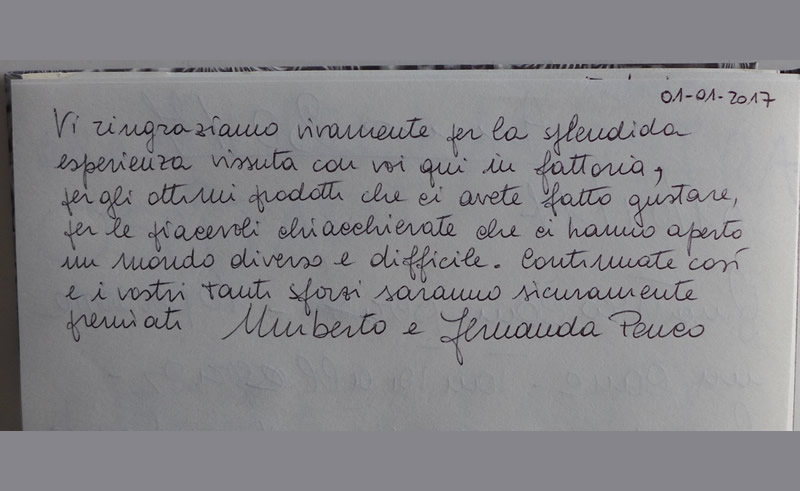 01-01-2017
Vi ringraziamo vivamente per la splendida
esperienza vissuta con voi qui in fattoria,
per gli ottimi prodotti che ci avete fatto gustare,
per le piacevoli chiacchierate che ci hanno aperto
un mondo diverso e difficile. Continuate così
e i vostri tanti sforzi saranno sicuramente
premiati Umberto e Fernanda